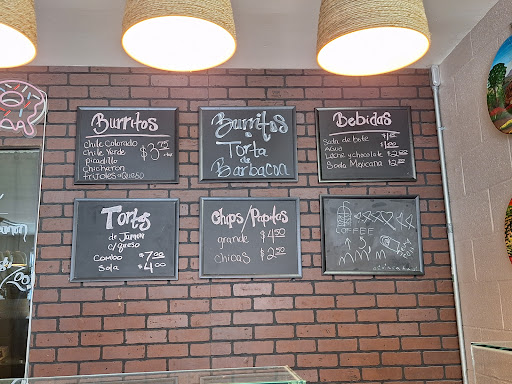 Burritos
Chile Colorado
Chile Verde
picadillo
chicharon
frijoles y queso
$3.75
Burritos
o
Torta
de
Barbacoa
Bebidas
Soda de bote $1.25
Agua $1.00
Leche y chocolate $2.00
Soda Mexicana
Tortas
de Jamon
c/queso
Combo $7.00
Sola $4.00
Chips/Papitas
grande $4.50
chicas $2.50
COFFEE